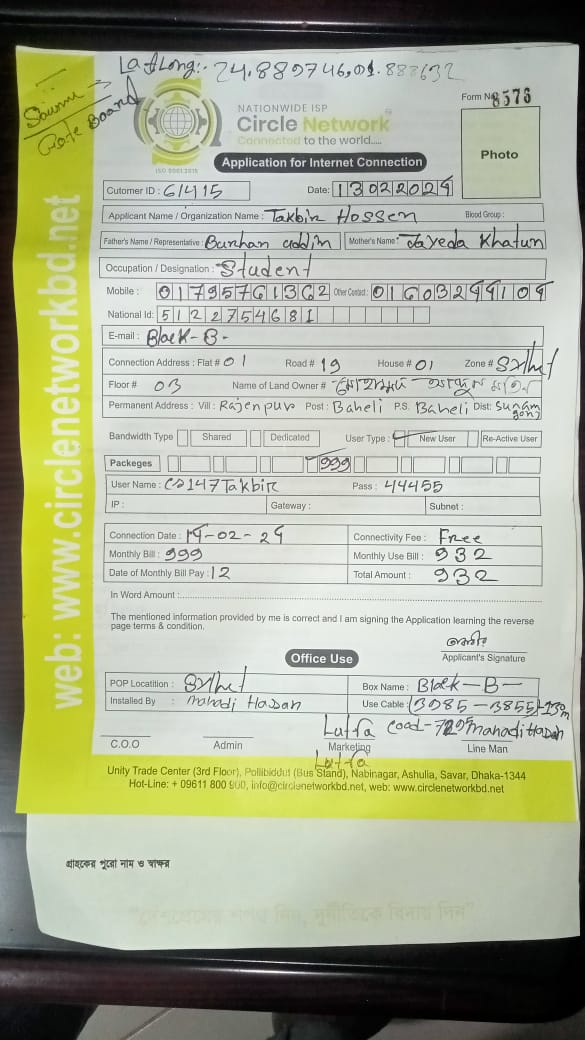 Lat Long:- 24.889746, 91.888632
Form No 8576
NATIONWIDE ISP
Circle Network
Connected to the world.....
ISO 9001:2015
Application for Internet Connection
Photo
web: www.circlenetworkbd.net
Cutomer ID : 61415 Date: 13022024
Applicant Name / Organization Name : Takbir Hossen Blood Group :
Father's Name / Representative : Burhan uddin Mother's Name : Jayeda Khatun
Occupation / Designation : Student
Mobile : 01795761362 Other Contact : 01603299109
National Id: 5122754681
E-mail : Block-B-
Connection Address : Flat # 01 Road # 19 House # 01 Zone # Sylhet
Floor # 03 Name of Land Owner # মোহাম্মদ
Permanent Address : Vill : Rajenpur Post : Baheli P.S. Baheli Dist: Sunamgonj
Bandwidth Type Shared Dedicated User Type : New User Re-Active User
Packeges 999
User Name : CS147Takbir Pass : 44455
IP : Gateway : Subnet :
Connection Date : 14-02-24 Connectivity Fee : Free
Monthly Bill : 999 Monthly Use Bill : 932
Date of Monthly Bill Pay : 12 Total Amount : 932
In Word Amount :
The mentioned information provided by me is correct and I am signing the Application learning the reverse
page terms & condition.
Applicant's Signature
Office Use
POP Locatition : Sylhet Box Name : Block-B-
Installed By : Mahadi Hasan Use Cable : (3985-3855)-130m
Lutfa Cood-7205 Mahadi Hasan
C.O.O Admin Marketing Line Man
Lutfa
Unity Trade Center (3rd Floor), Pollibiddut (Bus Stand), Nabinagar, Ashulia, Savar, Dhaka-1344
Hot-Line: + 09611 800 900, info@circlenetworkbd.net, web: www.circlenetworkbd.net
গ্রাহকের পুরো নাম ও স্বাক্ষর